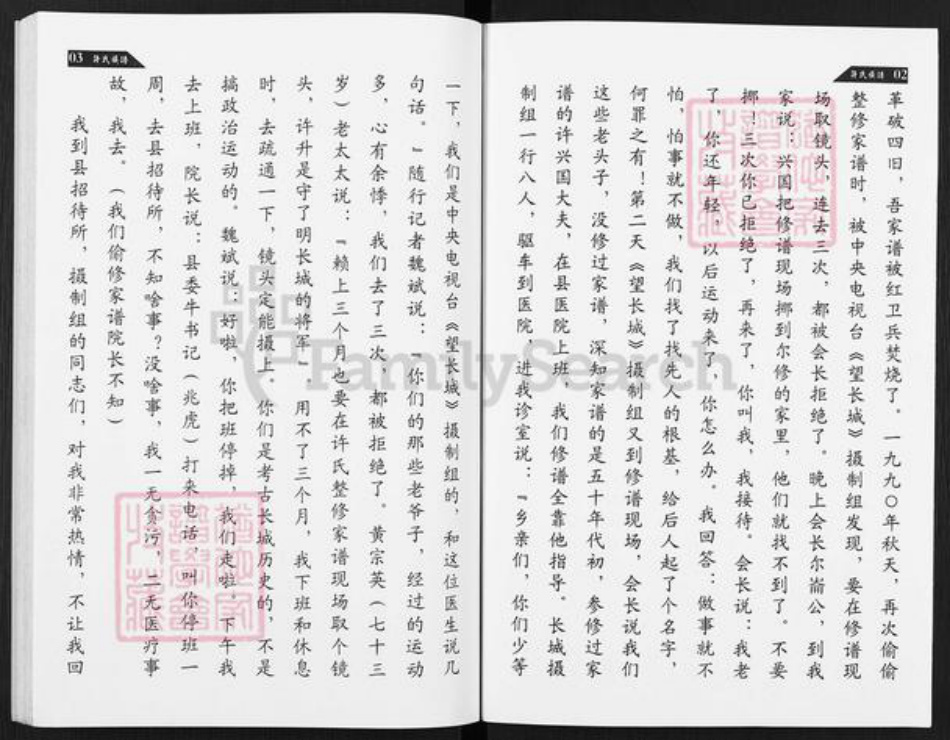 许氏族谱 02
革破四旧，吾家谱被红卫兵焚烧了。一九九〇年秋天，再次偷偷
整修家谱时，被中央电视台《望长城》摄制组发现，要在修谱现
场取镜头，连去三次，都被会长拒绝了。晚上会长尔崙公，到我
家说：兴国把修谱现场挪到尔修的家里，他们就找不到了。不要
挪！三次你已拒绝了，再来了，你叫我，我接待。会长说：我老
了，你还年轻，以后运动来了，你怎么办。我回答：做事就不
怕，怕事就不做，我们找了找先人的根基，给后人起了个名字，
何罪之有！第二天《望长城》摄制组又到修谱现场，会长说我们
这些老头子，没修过家谱，深知家谱的是五十年代初，参修过家
谱的许兴国大夫，在县医院上班，我们修谱全靠他指导。长城摄
制组一行八人，驱车到医院，进我诊室说：『乡亲们，你们少等
03 许氏族谱
一下，我们是中央电视台《望长城》摄制组的，和这位医生说几
句话。』随行记者魏斌说：『你们的那些老爷子，经过的运动
多，心有余悸，我们去了三次，都被拒绝了。黄宗英（七十三
岁）老太太说：『赖上三个月也要在许氏整修家谱现场取个镜
头，许升是守了明长城的将军』用不了三个月，我下班和休息
时，去疏通一下，镜头定能摄上。你们是考古长城历史的，不是
搞政治运动的。魏斌说：好啦，你把班停掉，我们走啦。下午我
去上班，院长说：县委牛书记（兆虎）打来电话，叫你停班一
周，去县招待所，不知啥事？没啥事，我一无贪污，二无医疗事
故，我去。（我们偷修家谱院长不知）
我到县招待所，摄制组的同志们，对我非常热情，不让我回
FamilySearch